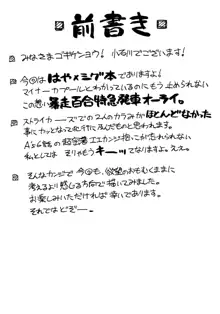 前書き
・みなさまゴキゲンヨウ! 小石川でございます!
・今回ははや×シグ本でありますよ!
マイナーカプールとわかっているのにもう止められない
この想い暴走百合特急発車オーライ。
・ストライカーズでの2人のカラみがほとんどなかった
事にカッとなって
んだものと思われます。
私としては そりゃもうキーッてなりますよ。ええ。
・そんなカンジで今回も、欲望のおもむくままに
考えるより感じる方向で描いてみました。
お楽しみいただければ幸いです。
それではどぞー。